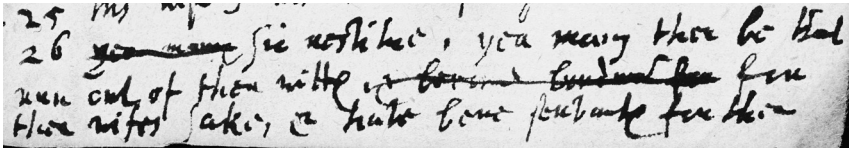 25 his
26 yea many sic restitue, yea many ther be that
runn out of ther witts & become bondmen for for
ther wifes sake, & have bene servants for ther